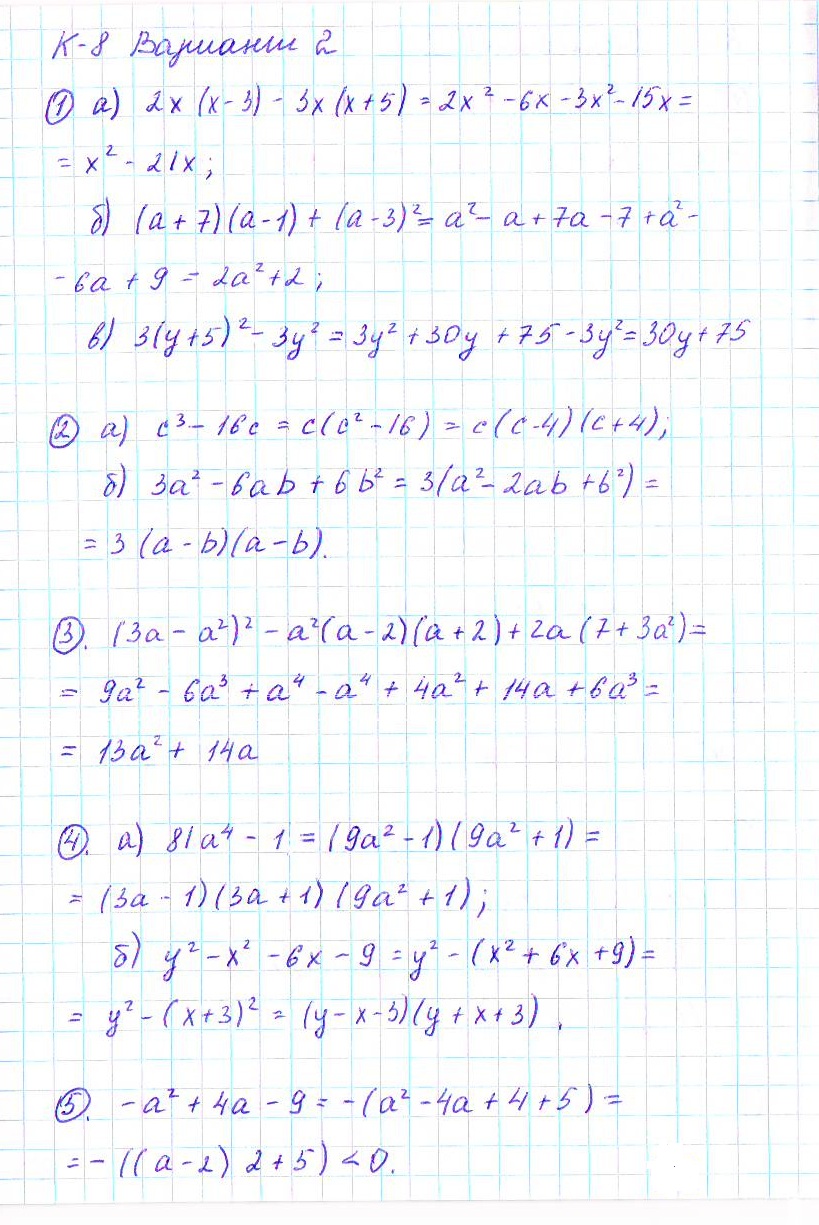 К-8 Вариант 2
① а) 2x (x-3) - 3x (x+5) = 2x² - 6x - 3x² - 15x =
= x² - 21x ;
б) (a+7)(a-1) + (a-3)² = a² - a + 7a - 7 + a² -
- 6a + 9 = 2a² + 2 ;
в) 3(y+5)² - 3y² = 3y² + 30y + 75 - 3y² = 30y + 75
② а) c³ - 16c = c(c² - 16) = c(c-4)(c+4);
б) 3a² - 6ab + 6b² = 3(a² - 2ab + b²) =
= 3 (a-b)(a-b).
③. (3a - a²)² - a²(a-2)(a+2) + 2a (7 + 3a²) =
= 9a² - 6a³ + a⁴ - a⁴ + 4a² + 14a + 6a³ =
= 13a² + 14a
④. а) 81a⁴ - 1 = (9a² - 1)(9a² + 1) =
= (3a - 1)(3a + 1)(9a² + 1);
б) y² - x² - 6x - 9 = y² - (x² + 6x + 9) =
= y² - (x+3)² = (y-x-3)(y+x+3) .
⑤. -a² + 4a - 9 = -(a² - 4a + 4 + 5) =
= - ((a-2) 2 + 5) < 0.